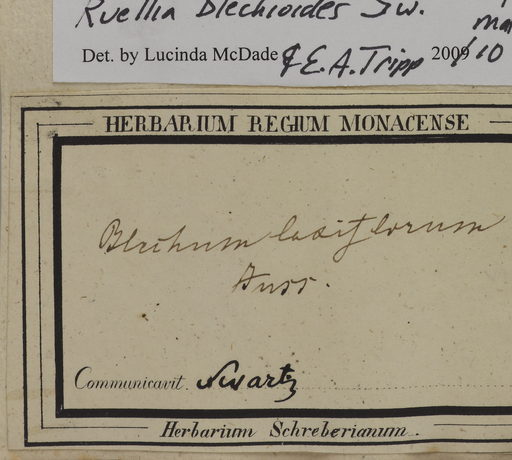 Ruellia blechioides Sw.
Mar
Det. by Lucinda McDade & E. A. Tripp 2009 10
HERBARIUM REGIUM MONACENSE
Blechum laxiflorum
Juss.
Communicavit Swartz
Herbarium Schreberianum.